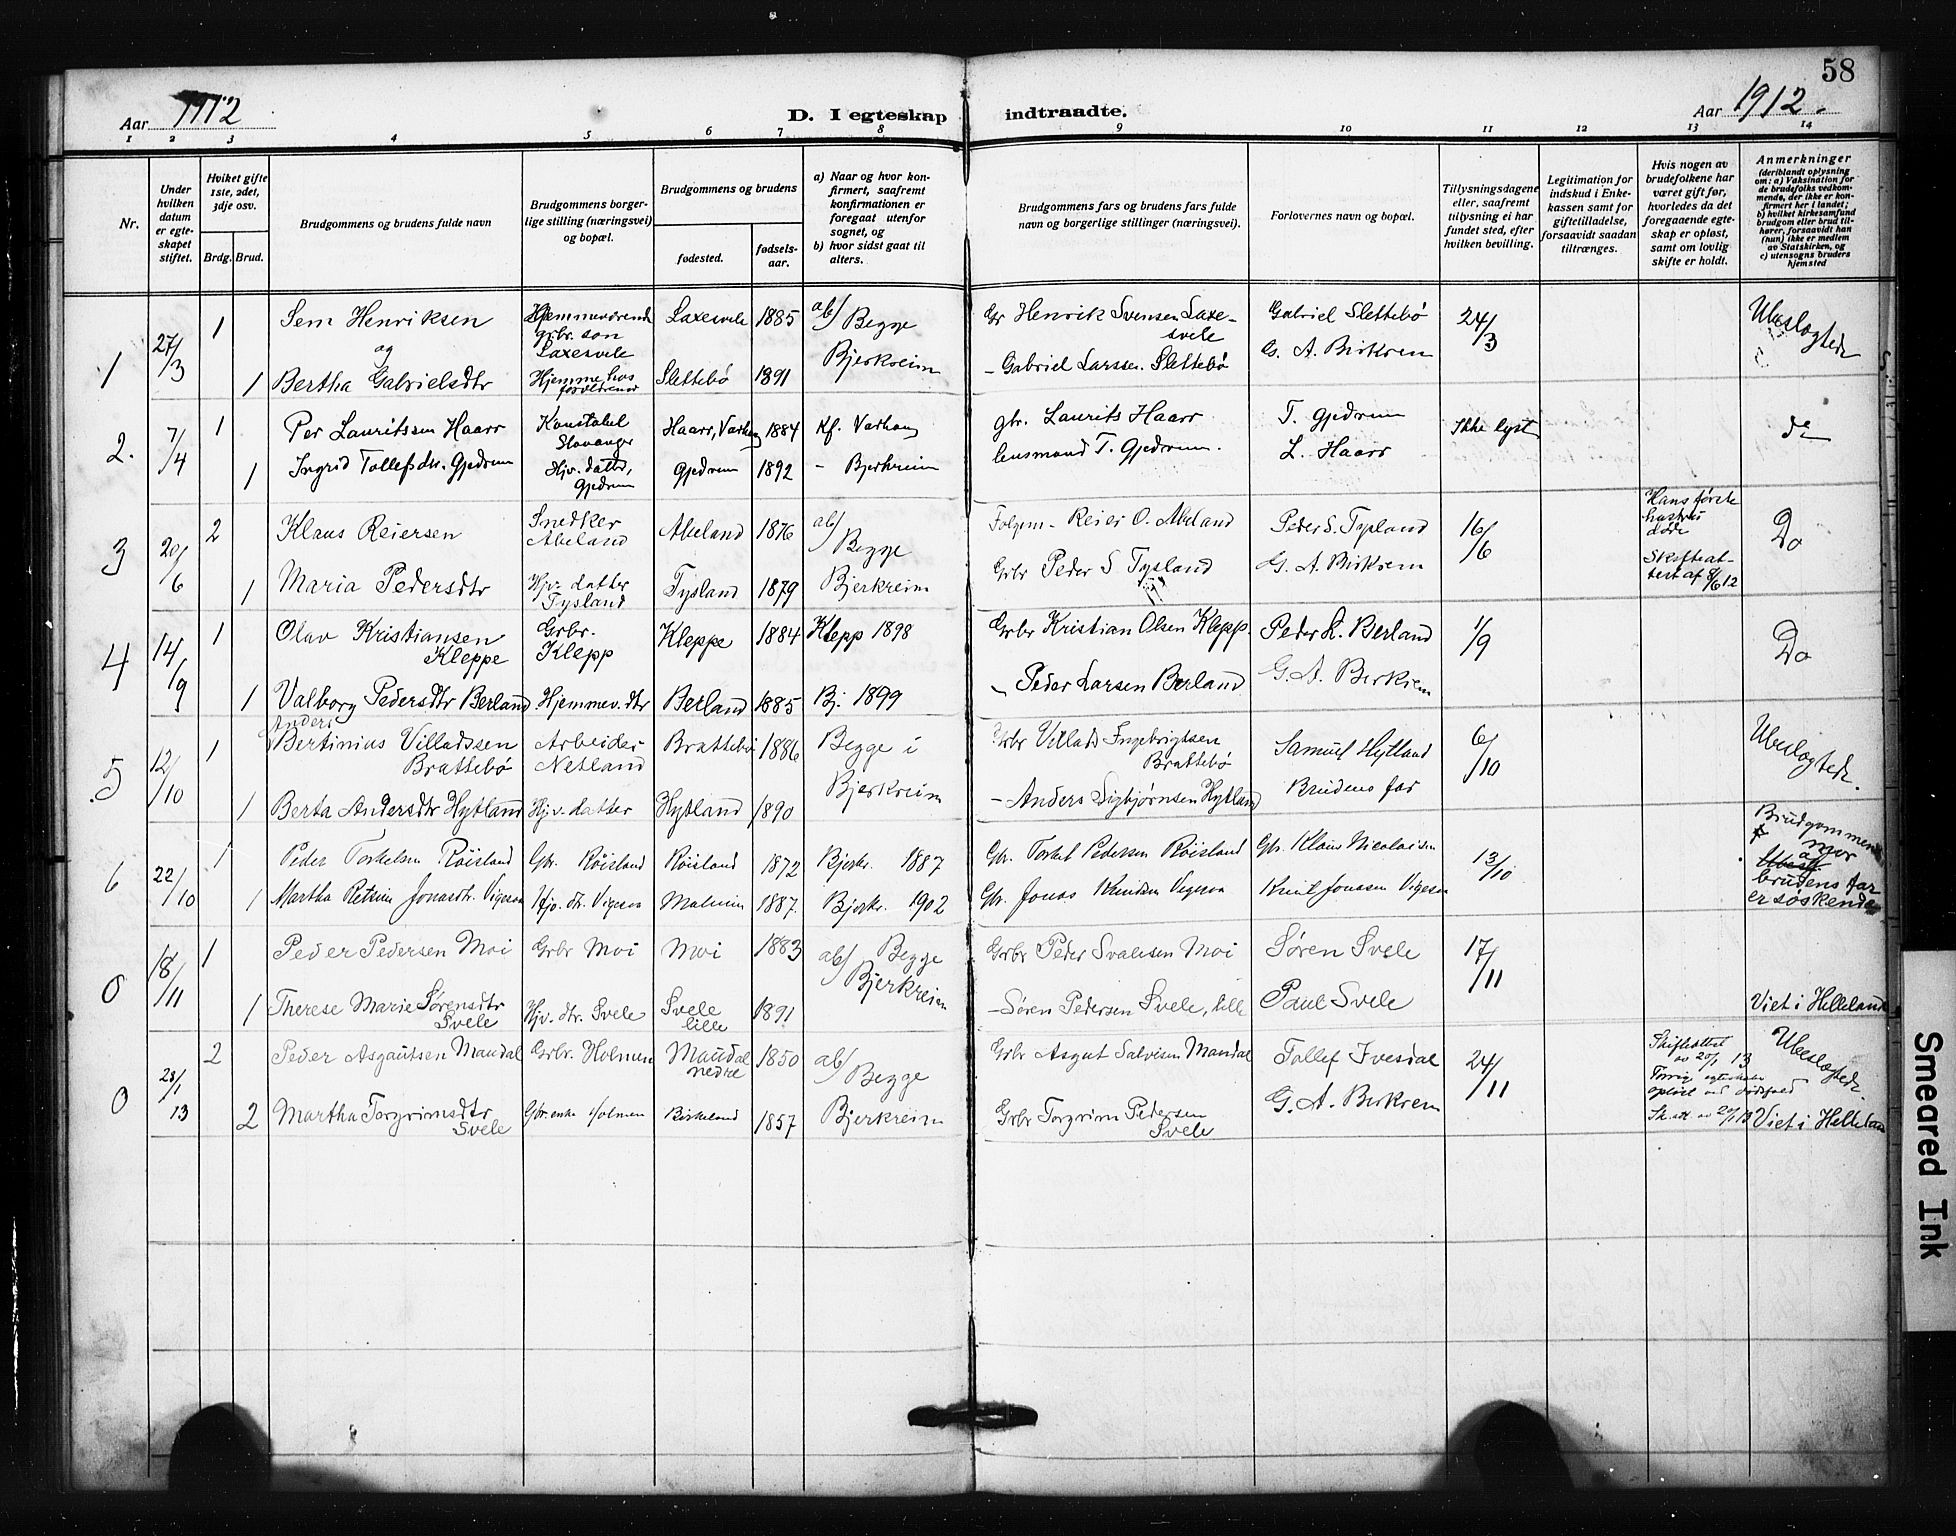 58
Aar 1912
D. I egteskap indtraadte.
Aar 1912.
1 2 3 4 5 6 7 8 9 10 11 12 13 14
Nr.
Under hvilken datum er egteskapet stiftet.
Hviket gifte 1ste, 2det, 3dje osv.
Brdg. Brud.
Brudgommens og brudens fulde navn
Brudgommens borgerlige stilling (næringsvei) og bopæl.
Brudgommens og brudens
fødested.
fødselsaar.
a) Naar og hvor konfirmert, saafremt konfirmationen er foregaat utenfor sognet, og
b) hvor sidst gaat til alters.
Brudgommens fars og brudens fars fulde navn og borgerlige stillinger (næringsvei).
Forlovernes navn og bopæl.
Tillysningsdagene eller, saafremt tilysning ei har fundet sted, efter hvilken bevilling.
Legitimation for indskud i Enkekassen samt for giftetilladelse, forsaavidt saadan tiltrænges.
Hvis nogen av brudefolkene har været gift før, hvorledes da det foregaaende egteskap er opløst, samt om lovlig skifte er holdt.
Anmerkninger
(deriblandt oplysning om: a) Vaksination for de brudefolks vedkommende, der ikke er konfirmert her i landet; b) hvilket kirkesamfund brudgom eller brud tilhører, forsaavidt han (hun) ikke er medlem av Statskirken, og c) utensogns bruders hjemsted
1 27/3 1 Sem Henriksen Hjemmeværende grbr. søn Laxesvele Laxesvele 1885 ab/ Begge Bjerkreim Gr Henrik Svensen Laxesvele Gabriel Slettebø 24/3 Ubeslægtede
og
1 Bertha Gabrielsdtr Hjemme hos forældrene Slettebø 1891 - Gabriel Larssen Slettebø G. A. Birkrem
2. 7/4 1 Per Lauritssen Haarr Konstabel Stavanger Haarr, Varhaug 1884 Kf. Varhaug gbr. Laurits Haarr T. Gjedrem Ikke lyst do
1 Ingrid Tollefsdtr. Gjedrem Hjv. datter, Gjedrem Gjedrem 1892 - Bjerkreim lensmand T. Gjedrem. L. Haarr
3 20/6 2 Klaus Reiersen Snedker Abeland Abeland 1876 ab/ Begge Bjerkreim Folgem - Reier O. Abeland Peder S. Tysland 16/6 Hans første hustru døde Skifteattest af 8/6 12 Do
1 Maria Pedersdtr Hjv datter Tysland Tysland 1879 Grbr Peder S Tysland G. A. Birkrem
4 14/9 1 Olav Kristiansen Kleppe Grbr. Klepp Kleppe 1884 Klepp 1898 Grbr Kristian Olsen Klepp. Peder L. Berland 1/9 Do
1 Valborg Pedersdtr Berland Hjemmev. dtr Berland 1885 Bj. 1899 - Peder Larsen Berland G. A. Birkrem
5 12/10 1 Anders Bertinius Villadssen Brattebø Arbeider Netland Brattebø 1886 Begge i Bjerkreim Grbr Villads Ingebrigtsen Brattebø Samuel Hytland 6/10 Ubeslægtede.
1 Berta Andersdtr Hytland Hjv. datter Hytland 1890 - Anders Sigbjørnsen Hytland Brudens far
6 22/10 1 Peder Torkelsen Røisland Gbr. Røisland Røisland 1872 Bjerkr. 1887 Gbr. Torkel Pedersen Røisland Gbr. Klaus Nicolaisen 13/10 Brudgommens mor og brudens far er søskende
1 Martha Jonasdtr. Vigesaa Hjv. dtr. Vigesaa 1887. Bjerkr. 1902 Gbr. Jonas Knudsen Vigesaa Knut Jonassen Vigesaa
0 18/11 1 Peder Pedersen Moi Grbr Moi Moi 1883 ab/ Begge Bjerkreim Grbr Peder Svalesen Moi Søren Svele 17/11
1 Therese Marie Sørensdtr Svele Hjv. dtr. Svele Svele lille 1891 - Søren Pedersen Svele, lille Paul Svele Viet i Helleland
0 28/1 13 2 Peder Asgautsen Maudal Grbr. Holmen Maudal nedre 1850 ab/ Begge Bjerkreim Grbr Asgut Salvesen Maudal Tollef Ivesdal 24/11 Skifteattest av 20/1 13 Ubeslægtede
2 Martha Torgrimsdtr Svele Gbr. enke Holmen Birkeland 1857 Grbr Torgrim Pedersen Svele G. A. Birkrem Sk. att. av 20/1 13 Viet i Helleland
Smeared Ink